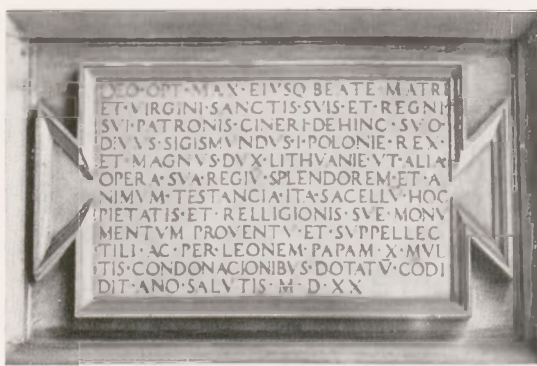 DEO·OPT·MAX·EIVSQ BEATE MATRI
ET·VIRGINI·SANCTIS·SVIS·ET·REGNI
SVI·PATRONIS·CINERI·DEHINC·SVO·
DIVVS·SIGISMVNDVS·I·POLONIE·REX·
ET·MAGNVS·DVX·LITHVANIE·VT·ALIA
OPERA·SVA·REGIV̄·SPLENDOREM·ET·A
NIMVM·TESTANCIA·ITA·SACELLV̄·HOC
PIETATIS·ET·RELLIGIONIS·SVE·MONV
MENTVM PROVENTV·ET·SVPPELLEC
TILI·AC·PER·LEONEM·PAPAM·X̄·MVL
TIS·CONDONACIONIBVS·DOTATV̄·CODI
DIT·ANO·SALVTIS·M·D·XX